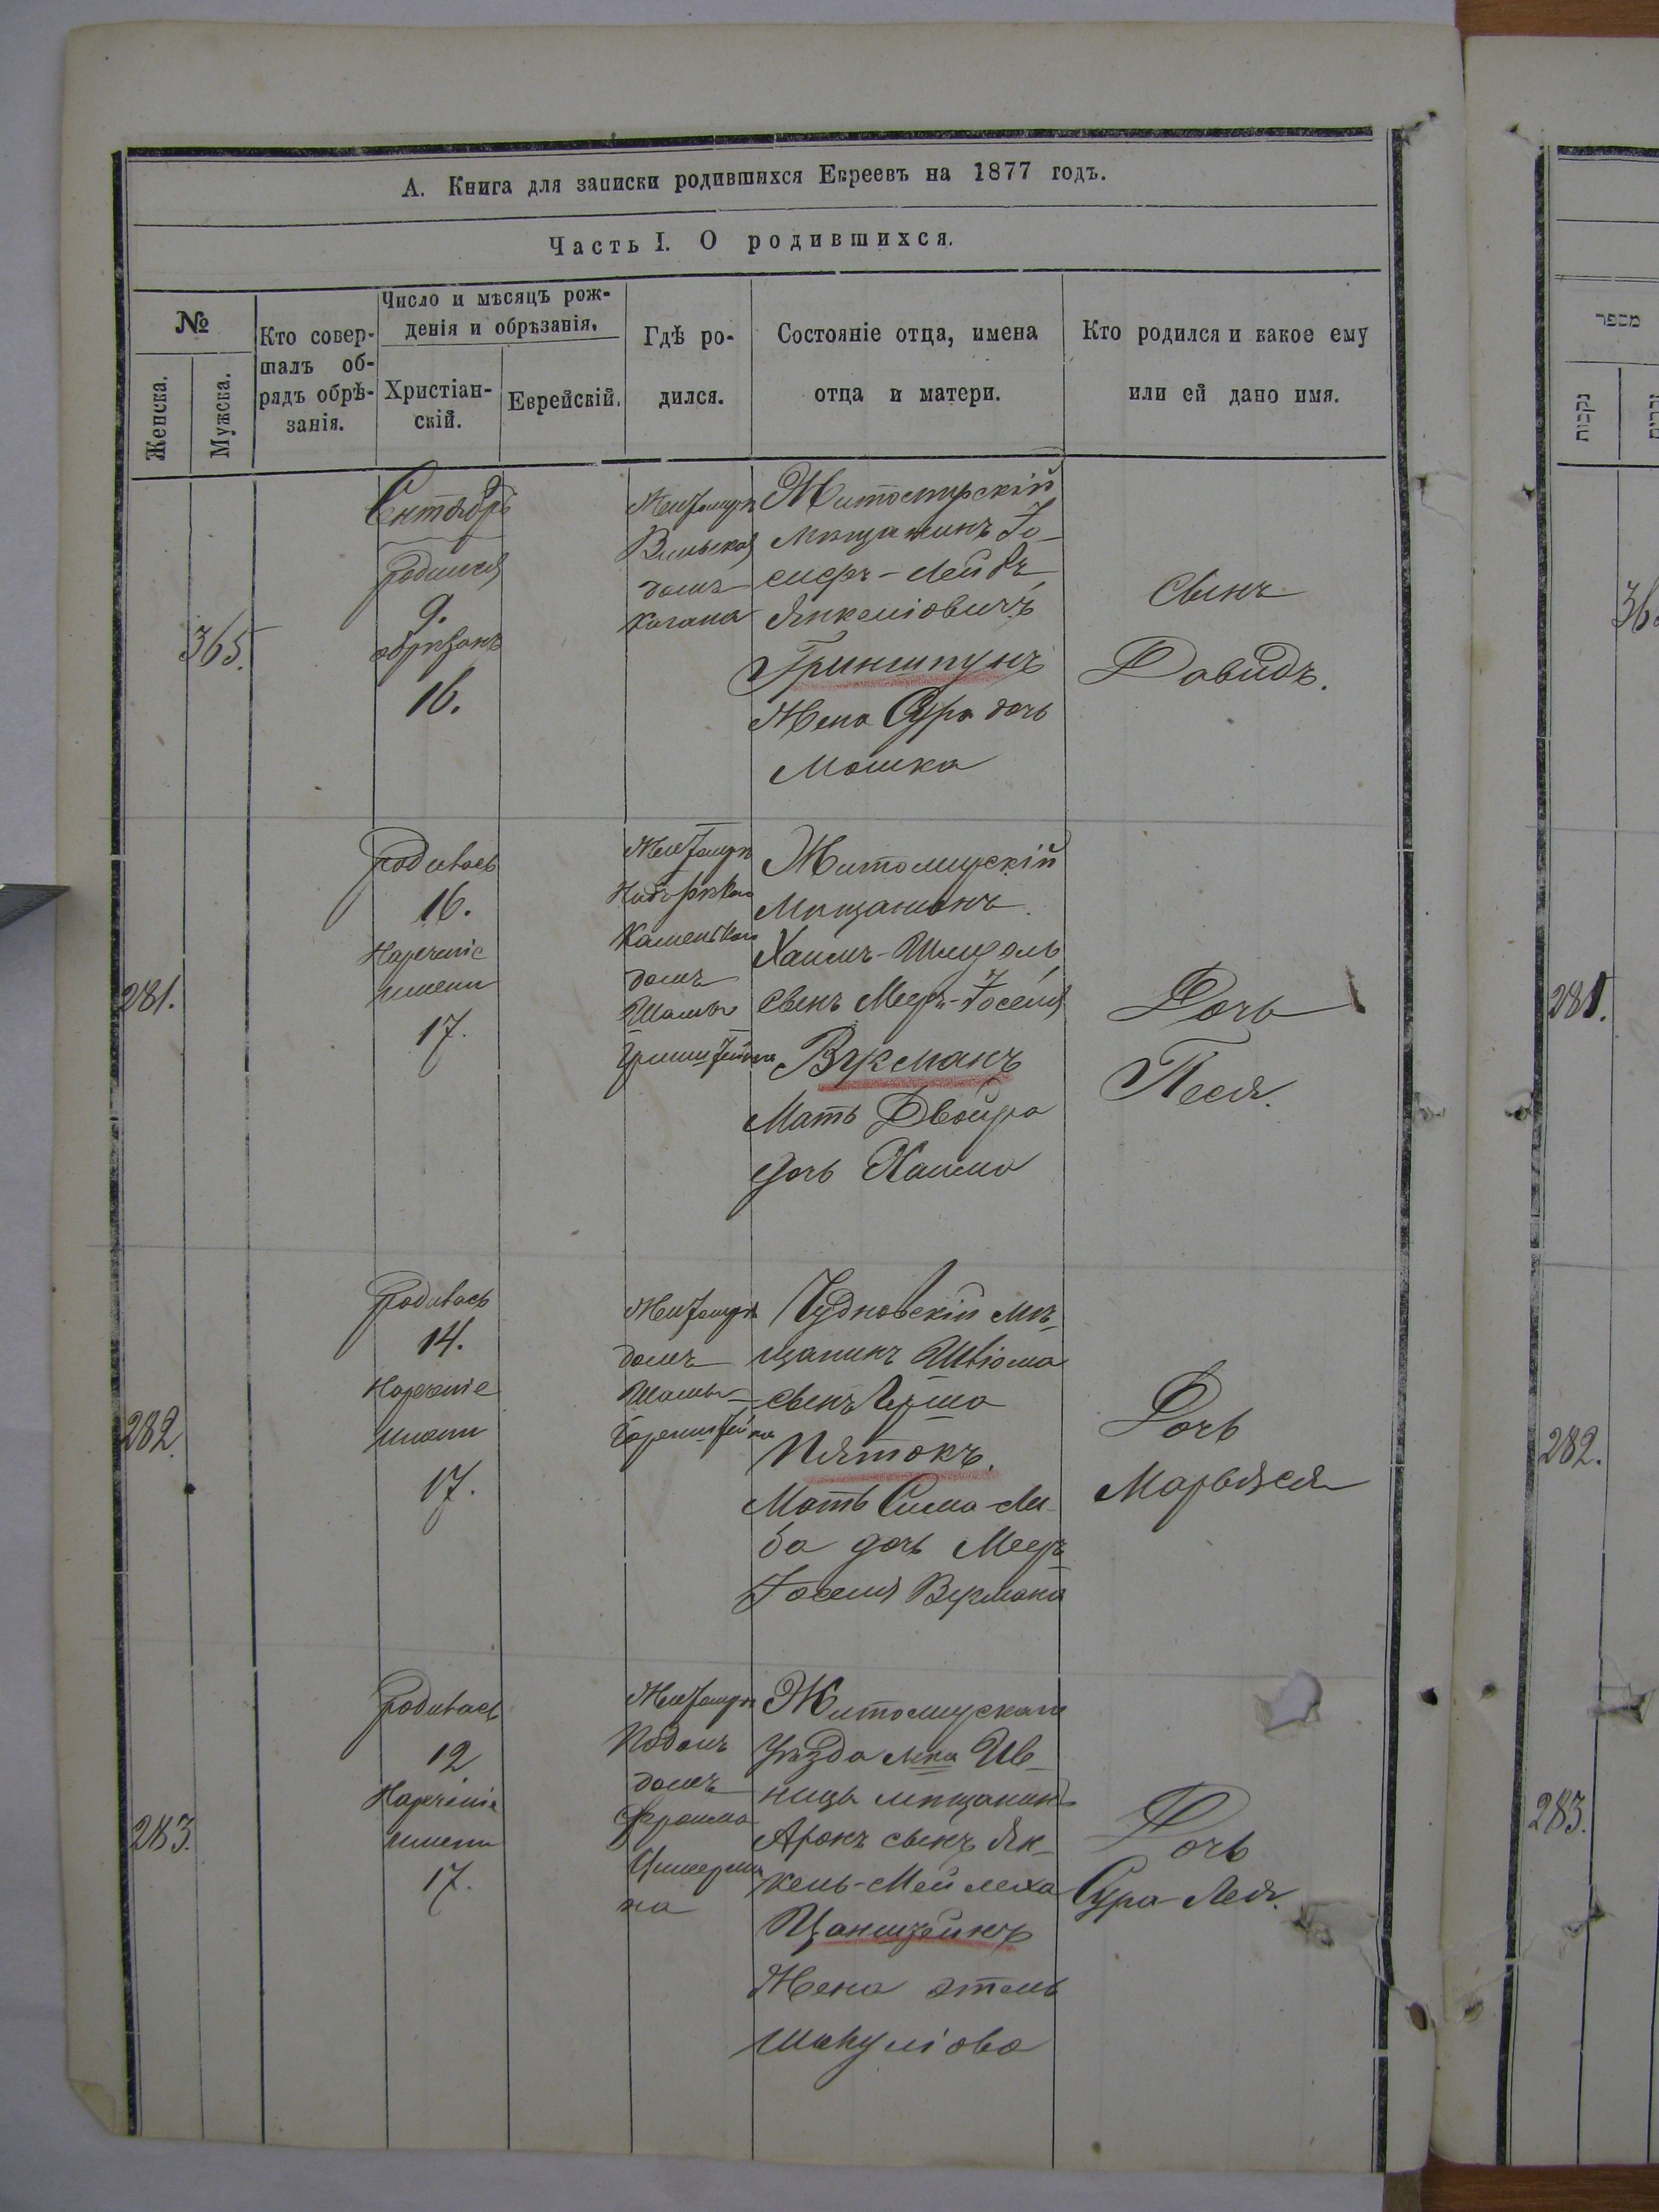 А. Книга для записки родившихся Евреевъ на 1877 годъ.
Часть I. О родившихся.
№
Женска.
Мужска.
Кто совер-
шалъ об-
рядъ обрѣ-
занія.
Число и мѣсяцъ рож-
денія и обрѣзанія.
Христіан-
скій.
Еврейскій.
Гдѣ ро-
дился.
Состояніе отца, имена
отца и матери.
Кто родился и какое ему
или ей дано имя.
365.
Сентябрь
родился
9.
обрѣзанъ
16.
Вильская
домъ
Когана
Житомирскій
мѣщанинъ Іо-
сифъ-Лейбъ
Янкеліовичъ
Гриншпунъ
Жена Сура дочь
Мошка
Сынъ
Давидъ.
281.
родилась
16.
Нареченіе
имени
17.
домъ
Житомирскій
Мѣщанинъ
Хаимъ-Шмуель
сынъ Мееръ-Іоселя
Вукманъ
Мать Двойра
дочь Хаима
Дочь
Песя.
282.
родилась
14.
Нареченіе
имени
17.
домъ
Чудновскій мѣ-
щанинъ Шліома
сынъ Герша
Пятокъ.
Мать Сима-Ли-
ба дочь Мееръ
Іоселя Вукмана
Дочь
Марьяся
283.
родилась
12.
Нареченіе
имени
17.
Подолъ
домъ
Фроима
Цимерма
на
Житомирскаго
уѣзда мка Ив-
ницы мѣщанинъ
Аронъ сынъ Ян-
кель-Мейлеха
Жена Этель
Шакуліова
Дочь
Сура-Лея.
מספר
נקבות
זכרים
281.
282.
283.